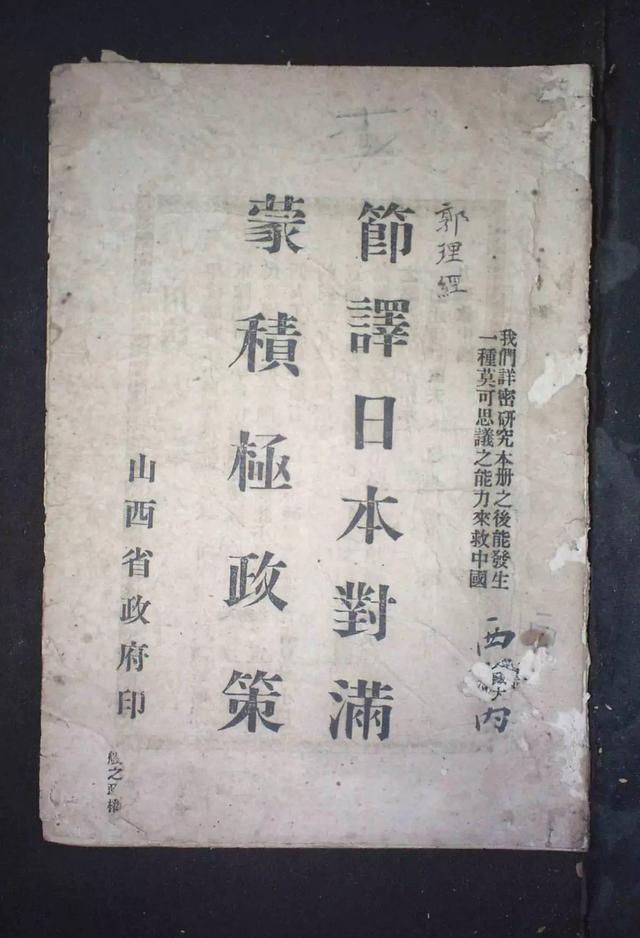 我們詳密研究本册之後能發生
一種莫可思議之能力來救中國
西
内
郭理經
節譯日本對滿
蒙積極政策
山西省政府印